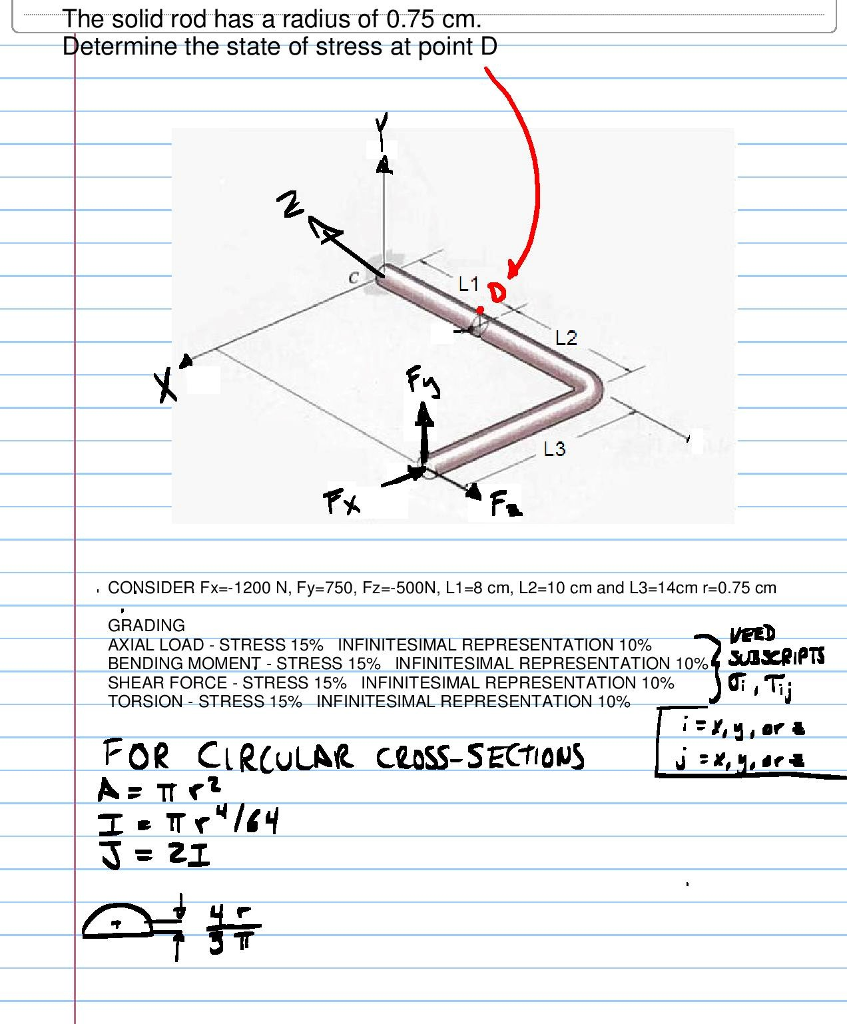 The solid rod has a radius of 0.75 cm.
Determine the state of stress at point D
Y
Z
C
L1
D
L2
X
Fy
L3
Fx
Fz
CONSIDER Fx=-1200 N, Fy=750, Fz=-500N, L1=8 cm, L2=10 cm and L3=14cm r=0.75 cm
GRADING
AXIAL LOAD - STRESS 15% INFINITESIMAL REPRESENTATION 10%
BENDING MOMENT - STRESS 15% INFINITESIMAL REPRESENTATION 10%
SHEAR FORCE - STRESS 15% INFINITESIMAL REPRESENTATION 10%
TORSION - STRESS 15% INFINITESIMAL REPRESENTATION 10%
NEED
SUBSCRIPTS
σi , τij
i = x, y, or z
j = x, y, or z
FOR CIRCULAR CROSS-SECTIONS
A = π r²
I = π r⁴/64
J = 2I
4 r
3 π